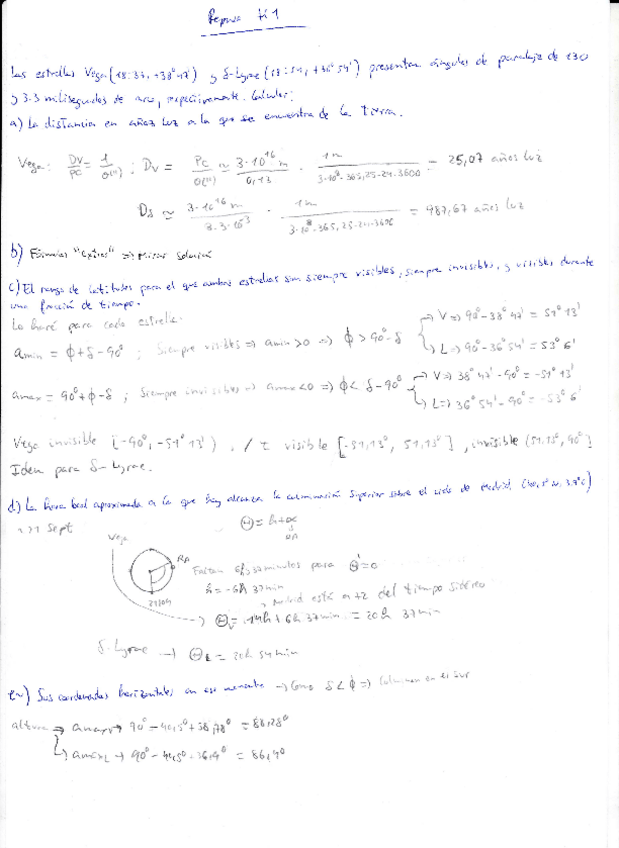 Repaso H1
Las estrellas Vega (18:37, +38º47') y δ-Lyrae (18:54, +36º54') presentan ángulos de paralaje de 130
y 3.3 milisegundos de arco, respectivamente. Calcular:
a) La distancia en años luz a la que se encuentra de la Tierra.
Vega: DV/PC = 1/θ('') ; DV = PC/θ('') ≃ 3·10^16 m / 0,13 · 1a / 3·10^8·365,25·24·3600 = 25,07 años luz
Ds ≃ 3·10^16 m / 3.3·10^3 · 1a / 3·10^8·365,25·24·3600 = 987,67 años luz
b) Fórmulas "extras" => Mirar solución
c) El rango de latitudes para el que ambas estrellas son siempre visibles, siempre invisibles, y visibles durante
una fracción de tiempo.
Lo haré para cada estrella:
amin = ϕ+δ-90º ; Siempre visibles => amin>0 => ϕ>90º-δ
V => 90º-38º47' = 51º13'
L => 90º-36º54' = 53º6'
amax = 90º+ϕ-δ ; Siempre invisibles => amax<0 => ϕ< δ-90º
V => 38º47'-90º = -51º13'
L => 36º54'-90º = -53º6'
Vega invisible [-90º, -51º13') , visible [-51,13º, 51,13º] , invisible (51,13º, 90º]
Idem para δ-Lyrae.
d) La hora local aproximada a la que hay alcanza la culminación superior sobre el cielo de Madrid (40,5º N,
21 Sept
Θ = h+α
Vega
RA
Faltan 6h 37 minutos para Θ=0
h = -6h 37min
Madrid está a +2 del tiempo sidéreo
Θv = 14h + 6h 37min = 20h 37min
δ-Lyrae → ΘL = 20h 54min
Sus coordenadas horizontales en ese momento → Como δ<ϕ => Culminan en el Sur
altura => amaxV → 90º-40,5º+38,78º = 88,28º
amaxL → 90º-40,5º+36,9º = 86,4º